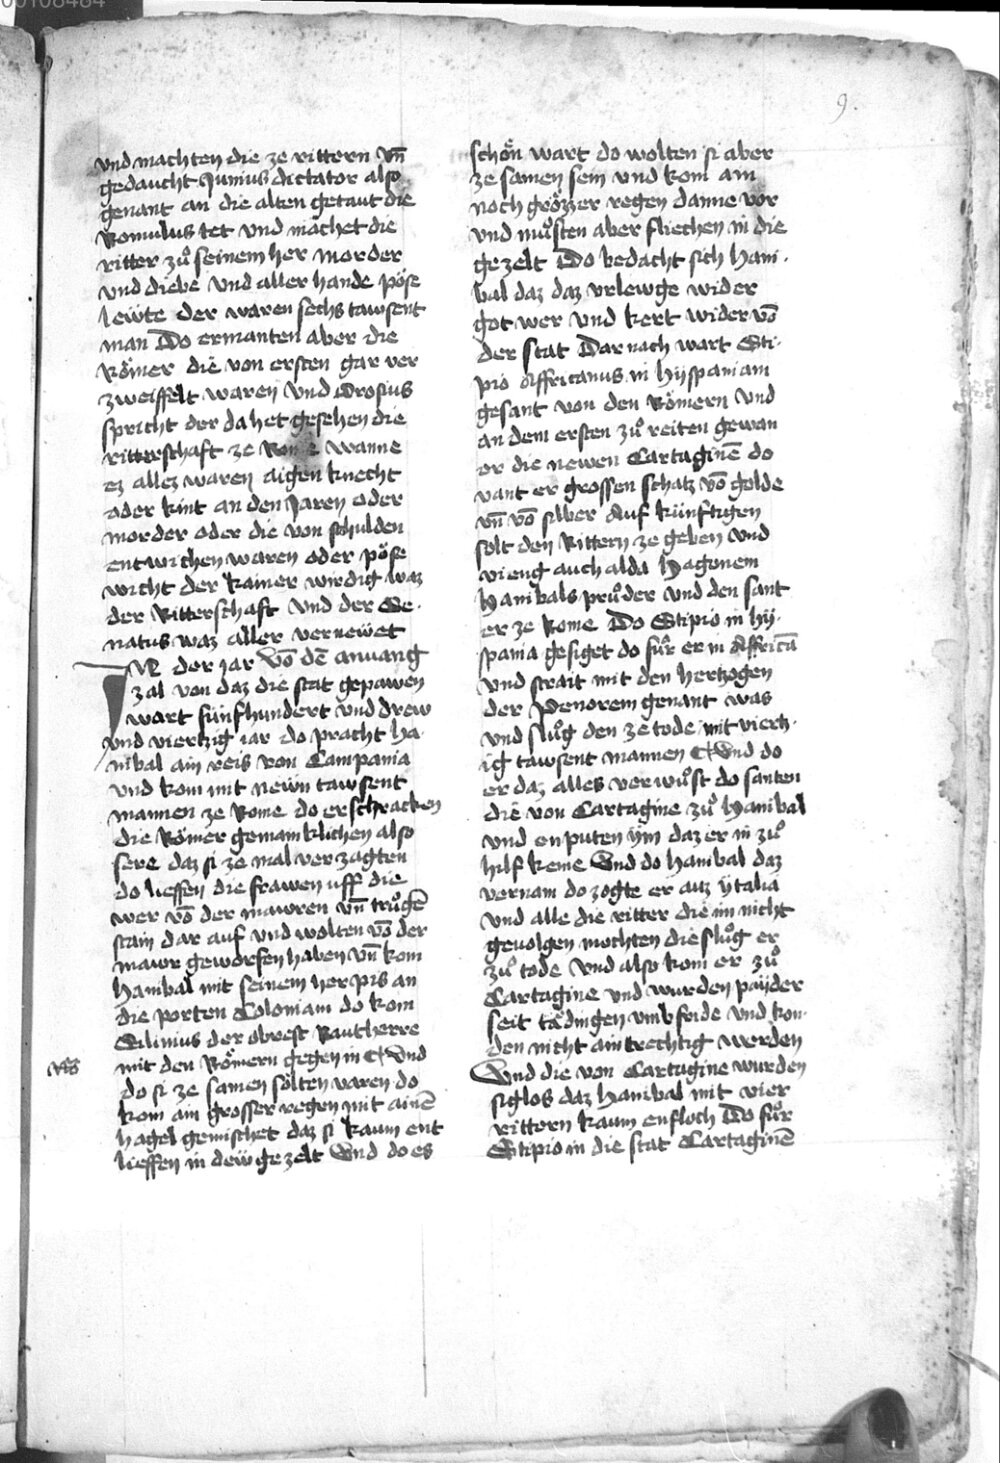 00108484
9.
vnd machten die ze rittern vn̄
gedaucht Junius dictator also
genant an die alten getaut die
Romulus tet vnd machet die
ritter zuͦ seinem her morder
vnd diebe vnd aller hande poͤse
lewte der waren sechs tawsent
man Do ermanten aber die
Roͤmer die von ersten gar ver
zweiffelt waren vnd Orosius
spricht der da het gesehen die
ritterschaft ze Rome wanne
ez allez waren aigen knecht
oder kint an den Jaren oder
morder oder die von schulden
entwichen waren oder poͤse
wicht der kainer wirdig waz
der Ritterschaft vnd der Se-
natus waz aller vernewet
In der jar vō dē anuang
zal von daz die stat gepawen
wart fünfhundert vnd drew
vnd viertzig iar do pracht Ha-
nibal ain reis von Campania
vnd kom mit newn tawsent
mannen ze Rome do erschracken
die Roͤmer gemainklichen also
sere daz si ze mal verzagten
do lieffen die frawen uff die
wer vō der mawren vn̄ truͦgē
stain dar auf vnd wolten vō der
mawr geworfen haben vn̄ kom
Hanibal mit seinem her pis an
die porten Coloniam do kom
Silinius der obrest Rautherre
mit den Roͤmern gegen in Vnd
do si ze samen solten varen do
kom ain grosser regen mit ainē
hagel gemischet daz si kaum ent
lieffen in dew gezelt Vnd do es
schoͤn wart do wolten si aber
ze samen sein vnd kom ain
noch groͤzzer regen danne vor
vnd muͦsten aber fliechen in die
gezelt Do bedacht sich Hani-
bal daz daz vrlewge wider
got wer vnd kert wider vō
der stat Dar nach wart Sti-
pio Affricanus in hyspaniam
gesant von den Roͤmern vnd
an dem ersten zuͦ reiten gewan
er die newen Cartaginē do
vant er grossen schatz vō golde
vn̄ vō silber Auf künftigen
solt den Rittern ze geben vnd
vieng auch alda Magonem
Hanibals pruͦder vnd den sant
er ze Rome Do Stipio in hy-
spania gesiget do fuͦr er in Affricā
vnd strait mit den hertzogen
der Penorem genant was
vnd sluͦg den ze tode mit viertz-
ig tawsent mannen Vnd do
er daz alles verwuͦst do santen
die von Cartagine zuͦ Hanibal
vnd enputen ym daz er in zuͦ
hilf keme Vnd do Hanibal daz
vernam do zogte er auz ytalia
vnd alle die ritter die im nicht
geuolgen mochten die sluͦg er
zuͦ tode vnd also kom er zuͦ
Cartagine vnd wurden payder
seit taͤdingen vmb fride vnd kon-
den nicht aintrechtig werden
Vnd die von Cartagine wurden
siglos daz Hanibal mit vier
rittern kaum enfloch Do fuͦr
Stipio in die stat Cartaginē